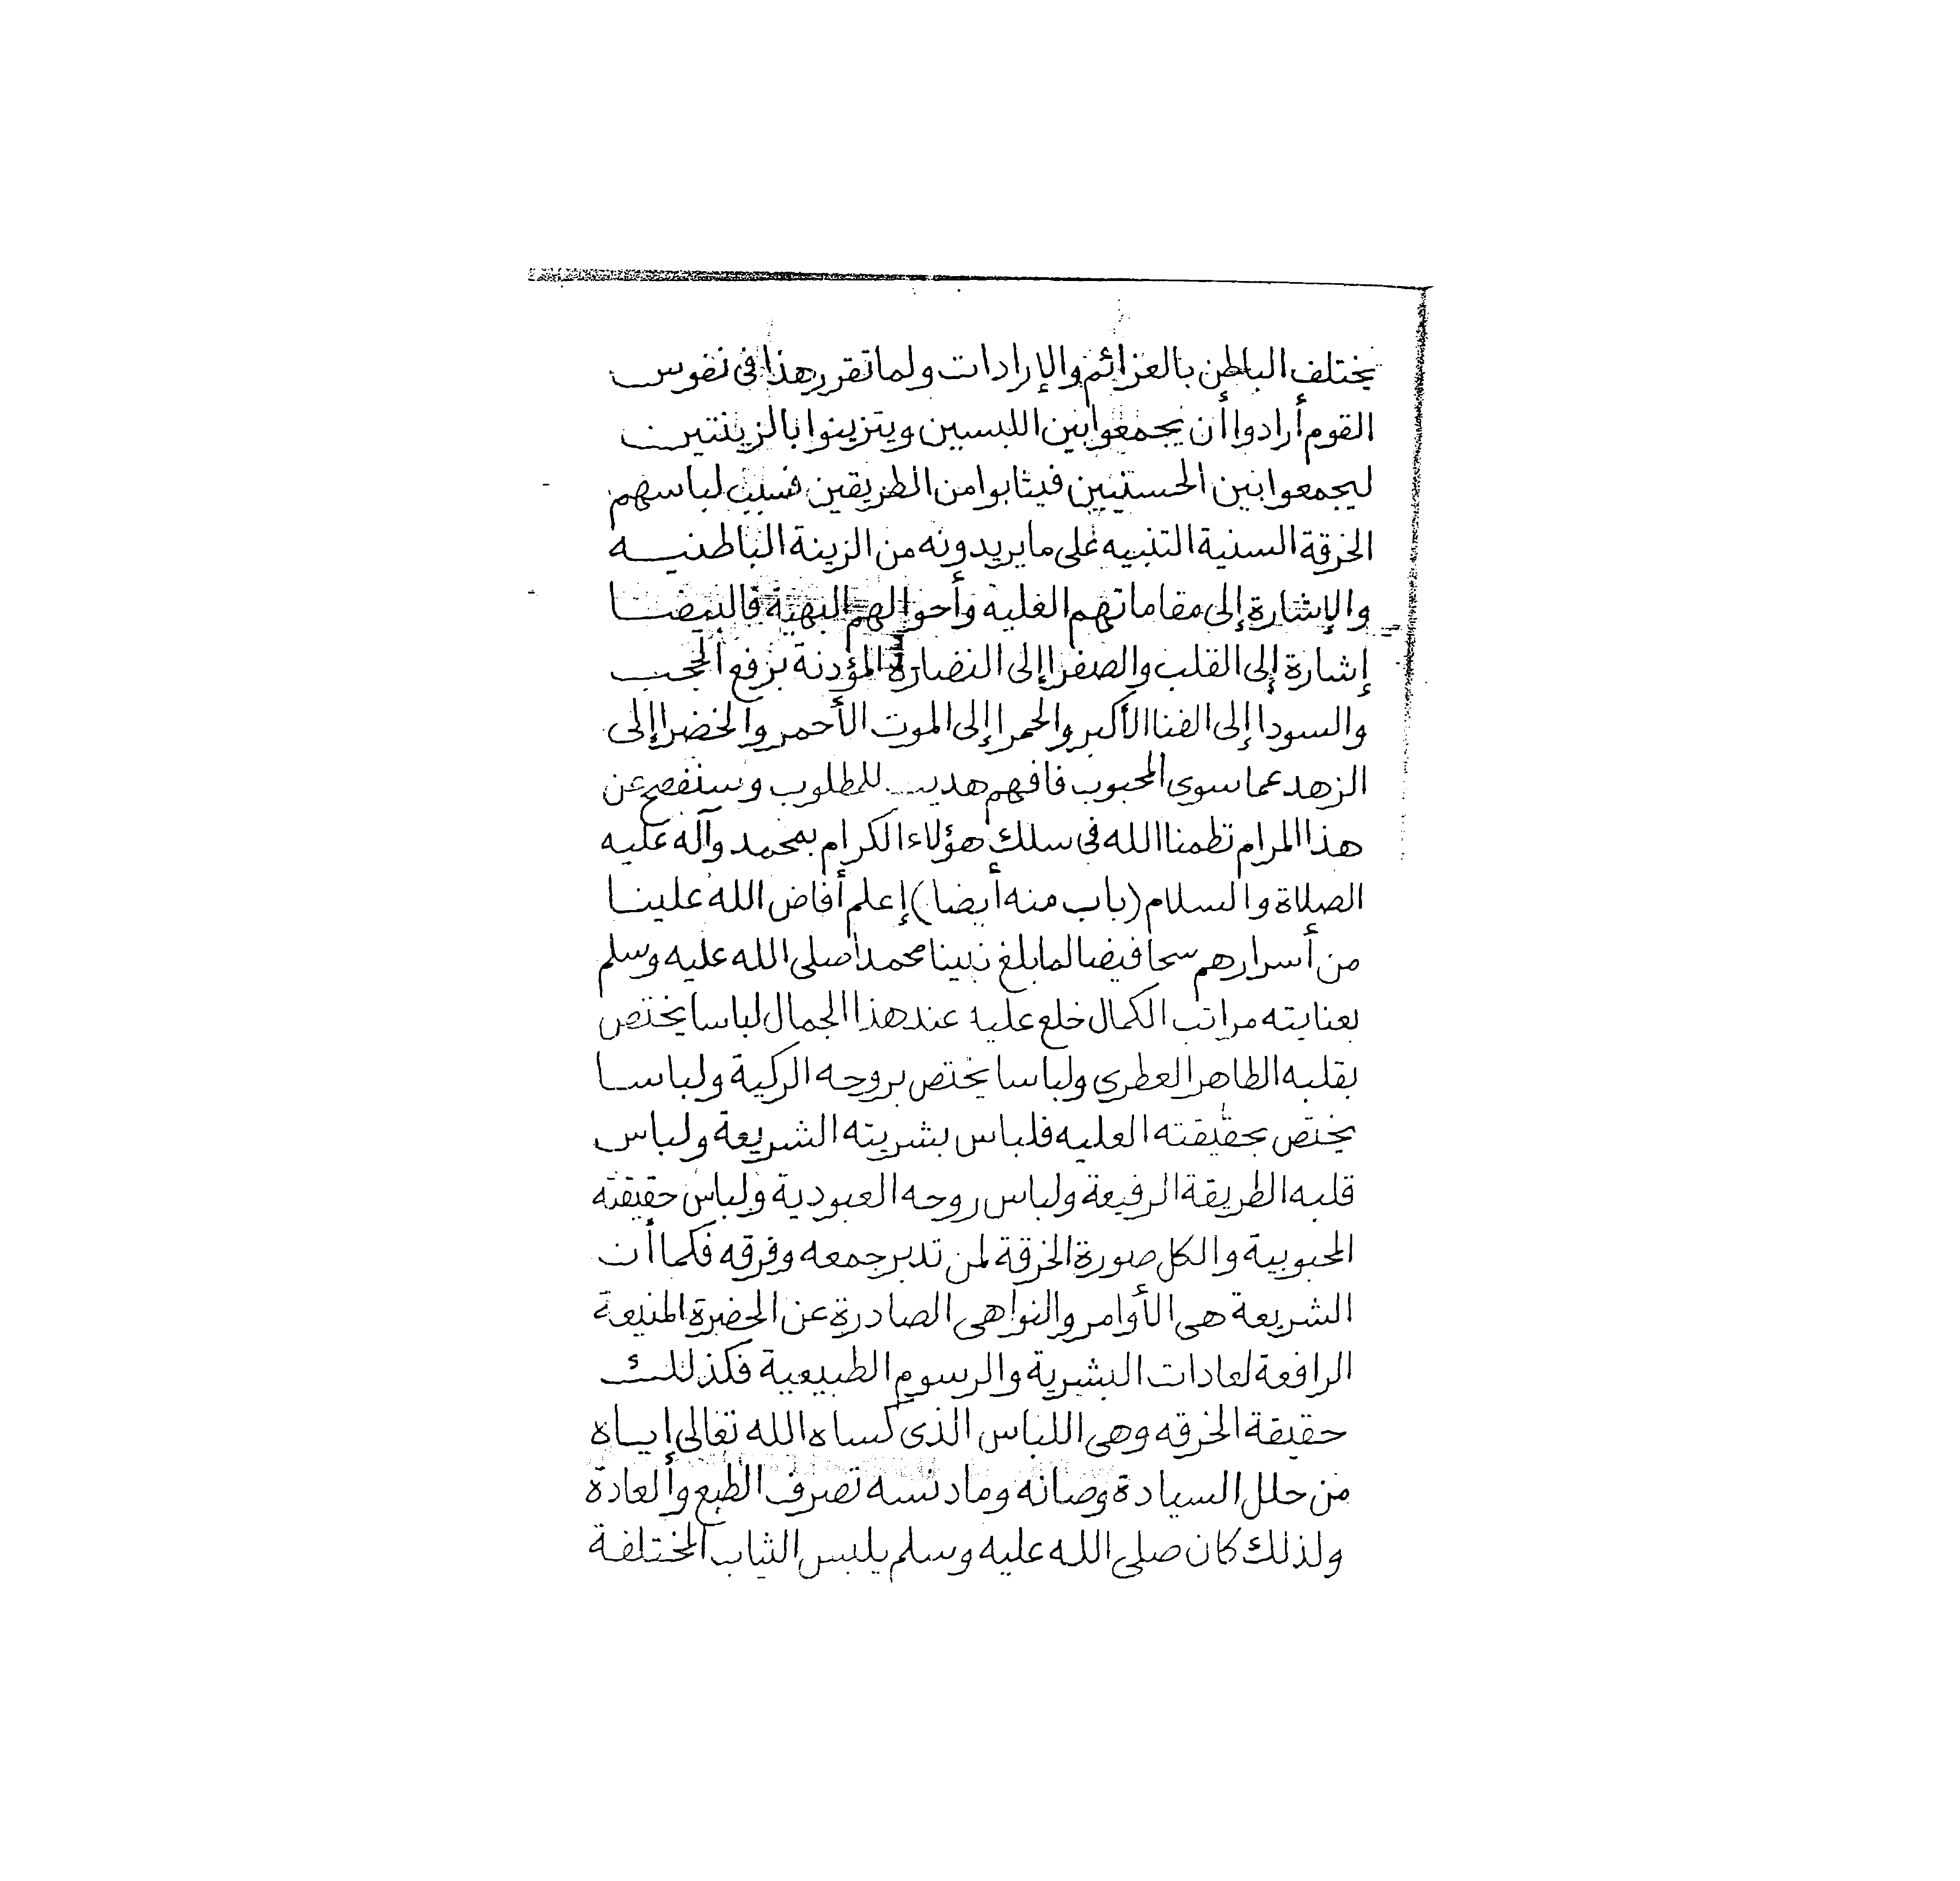 يختلف الباطن بالعزائم والإرادات ولما تقرر هذا فى نفوس
القوم أرادوا أن يجمعوا بين اللبسين ويتزينوا بالزينتين
ليجمعوا بين الحسنيين فيثابوا من الطريقين فسبب لباسهم
الخرقة السنية التنبيه على ما يريدونه من الزينة الباطنيه
والإشارة إلى مقاماتهم العليه وأحوالهم البهية فالبيضا
إشارة إلى القلب والصفرا إلى النضارة المؤدنة برفع الحجب
والسودا إلى الفنا الأكبر والحمرا إلى الموت الأحمر والخضرا إلى
الزهد عما سوى المحبوب فافهم هديت للمطلوب وسنفصح عن
هذا المرام نظمنا الله فى سلك هؤلاء الكرام بمحمد وآله عليه
الصلاة والسلام (باب منه أيضا) إعلم أفاض الله علينا
من أسرارهم سحا فيضا لما بلغ نبينا محمدا صلى الله عليه وسلم
بعنايته مراتب الكمال خلع عليه عند هذا الجمال لباسا يختص
بقلبه الطاهر العطرى ولباسا يختص بروحه الزكية ولباسا
يختص بحقيقته العليه فلباس بشريته الشريعة ولباس
قلبه الطريقة الرفيعة ولباس روحه العبودية ولباس حقيقته
المحبوبية والكل صورة الخرقة لمن تدبر جمعه وفرقه فكما أن
الشريعة هى الأوامر والنواهى الصادرة عن الحضرة المنيعة
الرافعة لعادات البشرية والرسوم الطبيعية فكذلك
حقيقة الخرقه وهى اللباس الذى كساه الله تعالى إياه
من حلل السيادة وصانه وما دنسه تصرف الطبع والعادة
ولذلك كان صلى الله عليه وسلم يلبس الثياب المختلفة